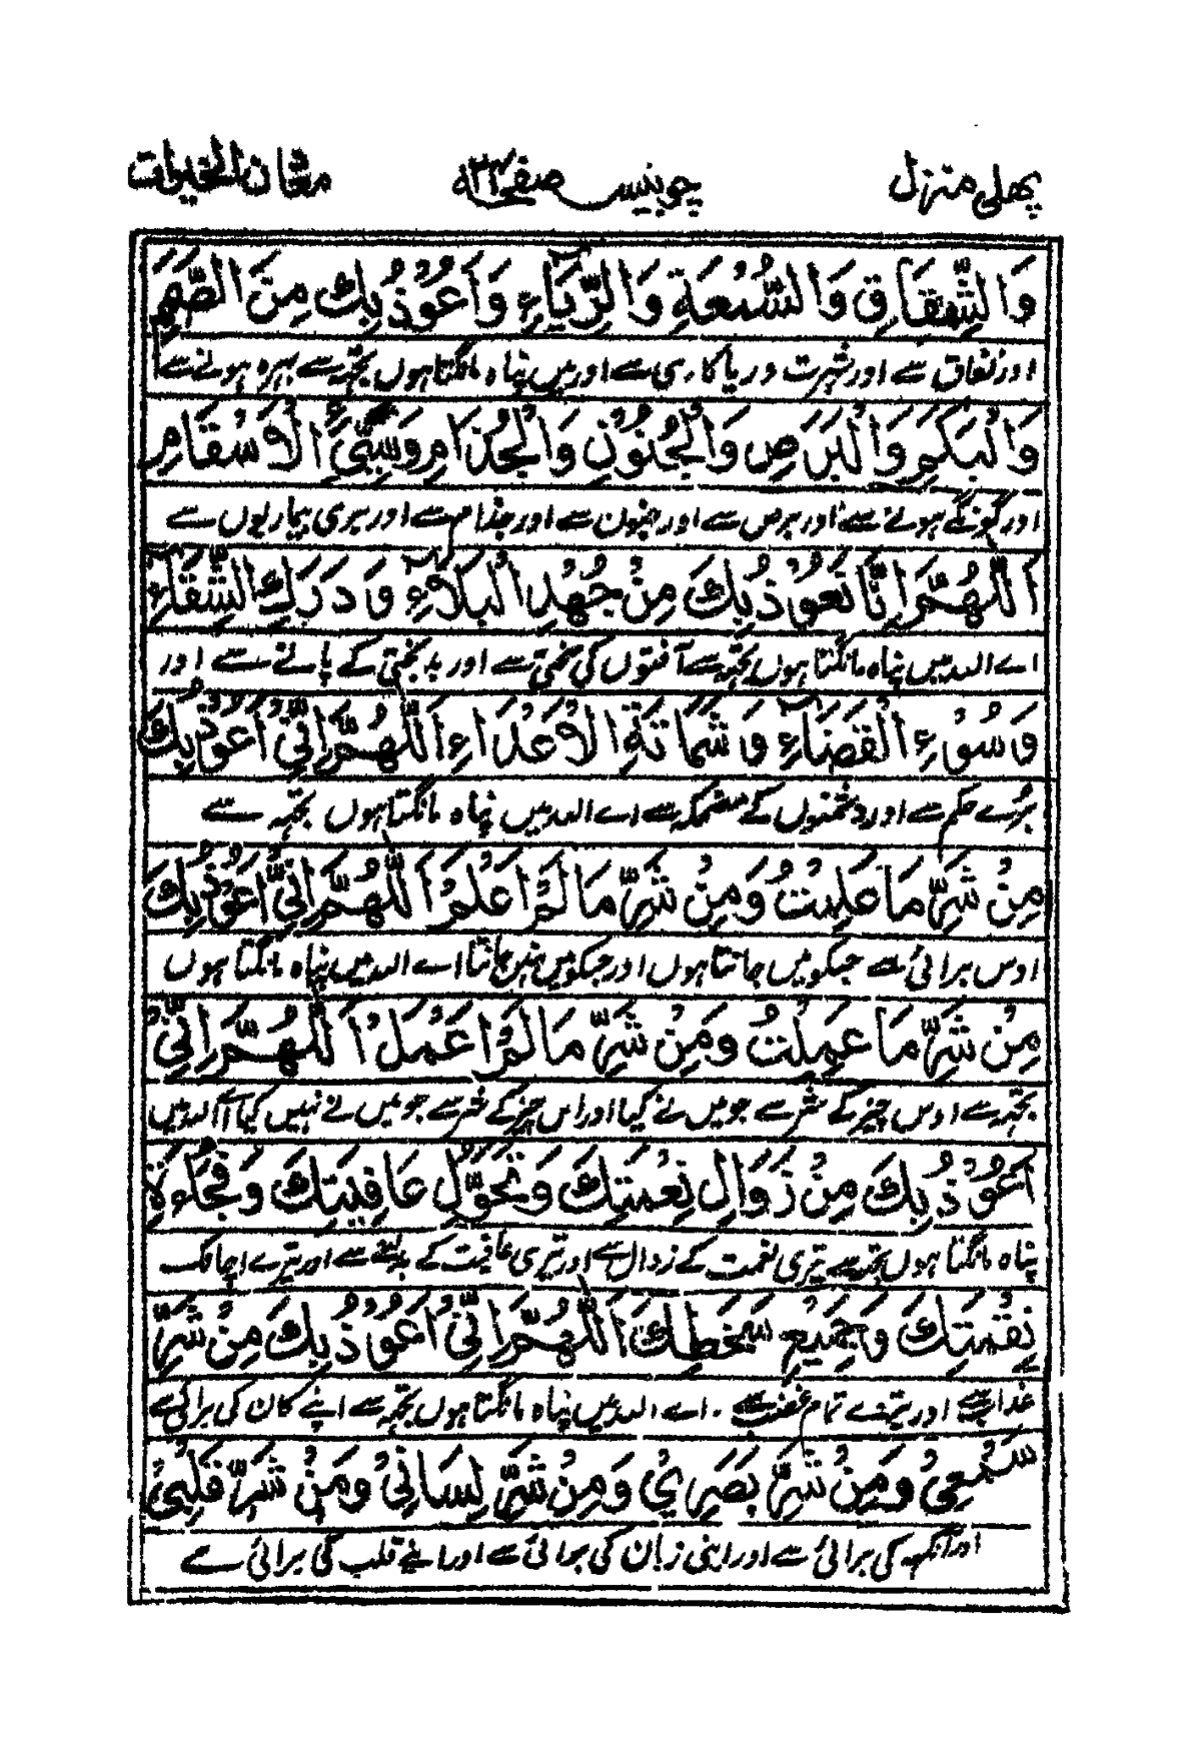 پہلی منزل چوبیس صفحہ ۲۳ معان الخیرات
وَالشِّقَاقِ وَالسُّمْعَةِ وَالرِّيَاءِ وَأَعُوْذُ بِكَ مِنَ الصَّمَمِ
اور نفاق سے اور شہرت و ریا کاری سے اور میں پناہ مانگتا ہوں تجھ سے بہرہ ہونے سے
وَالْبَكَمِ وَالْبَرَصِ وَالْجُنُوْنِ وَالْجُذَامِ وَسَيِّئِ الْاَسْقَامِ
اور گونگے ہونے سے اور برص سے اور جنون سے اور جذام سے اور بری بیماریوں سے
اَللّٰهُمَّ اِنَّا نَعُوْذُ بِكَ مِنْ جُهْدِ الْبَلَاءِ وَدَرَكِ الشَّقَاءِ
اے اللہ میں پناہ مانگتا ہوں تجھ سے آفتوں کی سختی سے اور بدبختی کے پانے سے اور
وَسُوْءِ الْقَضَاءِ وَشَمَاتَةِ الْاَعْدَاءِ اَللّٰهُمَّ اِنِّيْ اَعُوْذُ بِكَ
بڑے حکم سے اور دشمنوں کے مضحکہ سے اے اللہ میں پناہ مانگتا ہوں تجھ سے
مِنْ شَرِّ مَا عَلِمْتُ وَمِنْ شَرِّ مَا لَمْ اَعْلَمْ اَللّٰهُمَّ اِنِّيْ اَعُوْذُ بِكَ
اوس برائی سے جسکو میں جانتا ہوں اور جسکو میں نہیں جانتا اے اللہ میں پناہ مانگتا ہوں
مِنْ شَرِّ مَا عَمِلْتُ وَمِنْ شَرِّ مَا لَمْ اَعْمَلْ اَللّٰهُمَّ اِنِّيْ
تجھ سے اوس چیز کے شر سے جو میں نے کیا اور اس چیز کے شر سے جو میں نے نہیں کیا اے اللہ میں
اَعُوْذُ بِكَ مِنْ زَوَالِ نِعْمَتِكَ وَتَحَوُّلِ عَافِيَتِكَ وَفُجَاءَةِ
پناہ مانگتا ہوں تجھ سے تیری نعمت کے زوال سے اور تیری عافیت کے بدلنے سے اور تیرے اچانک
نِقْمَتِكَ وَجَمِيْعِ سَخَطِكَ اَللّٰهُمَّ اِنِّيْ اَعُوْذُ بِكَ مِنْ شَرِّ
عذاب سے اور تیرے تمام غضب سے ۔ اے اللہ میں پناہ مانگتا ہوں تجھ سے اپنے کان کی برائی سے
سَمْعِيْ وَمِنْ شَرِّ بَصَرِيْ وَمِنْ شَرِّ لِسَانِيْ وَمِنْ شَرِّ قَلْبِيْ
اور آنکھ کی برائی سے اور اپنی زبان کی برائی سے اور اپنے قلب کی برائی سے